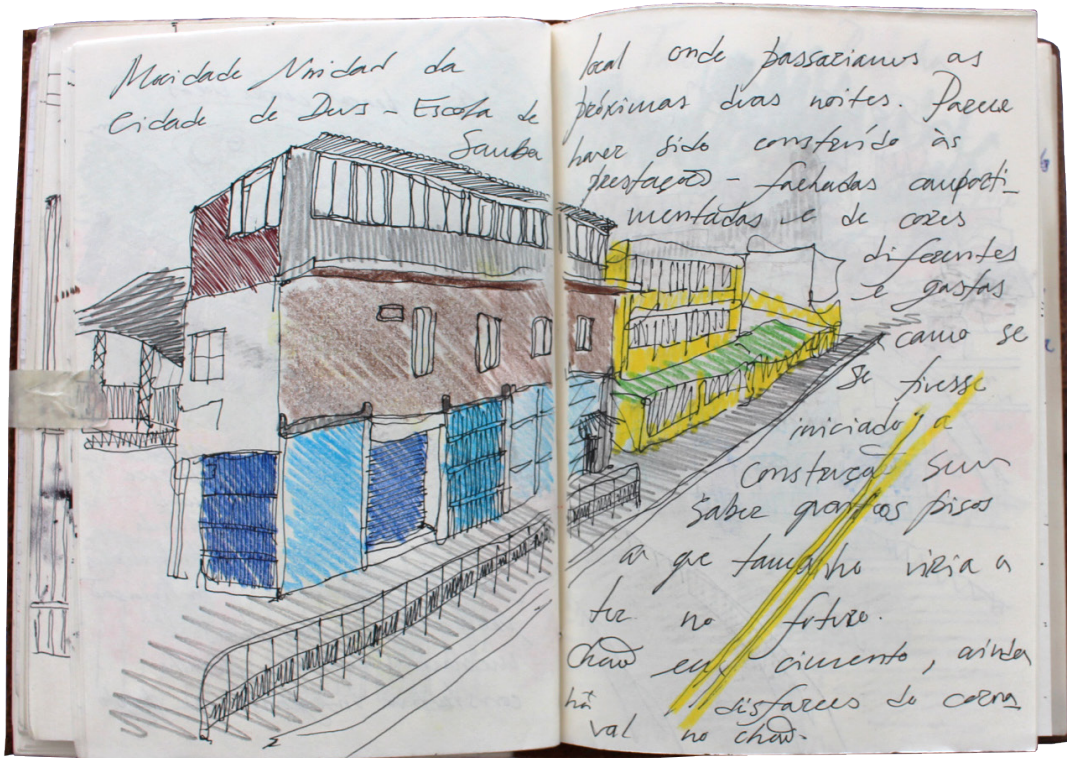 Mocidade Unidad da
Cidade de Deus - Escola de
Samba
local onde passariamos as
próximas duas noites. Parece
haver sido construído às
prestações - fachadas comparti_
mentadas e de cores
diferentes
e gastas
como se
se tivesse
iniciado a
construção sem
saber quantos pisos
ou que tamanho viria a
ter no futuro.
Chão em cimento, ainda
há disfarces de carna
val no chão.